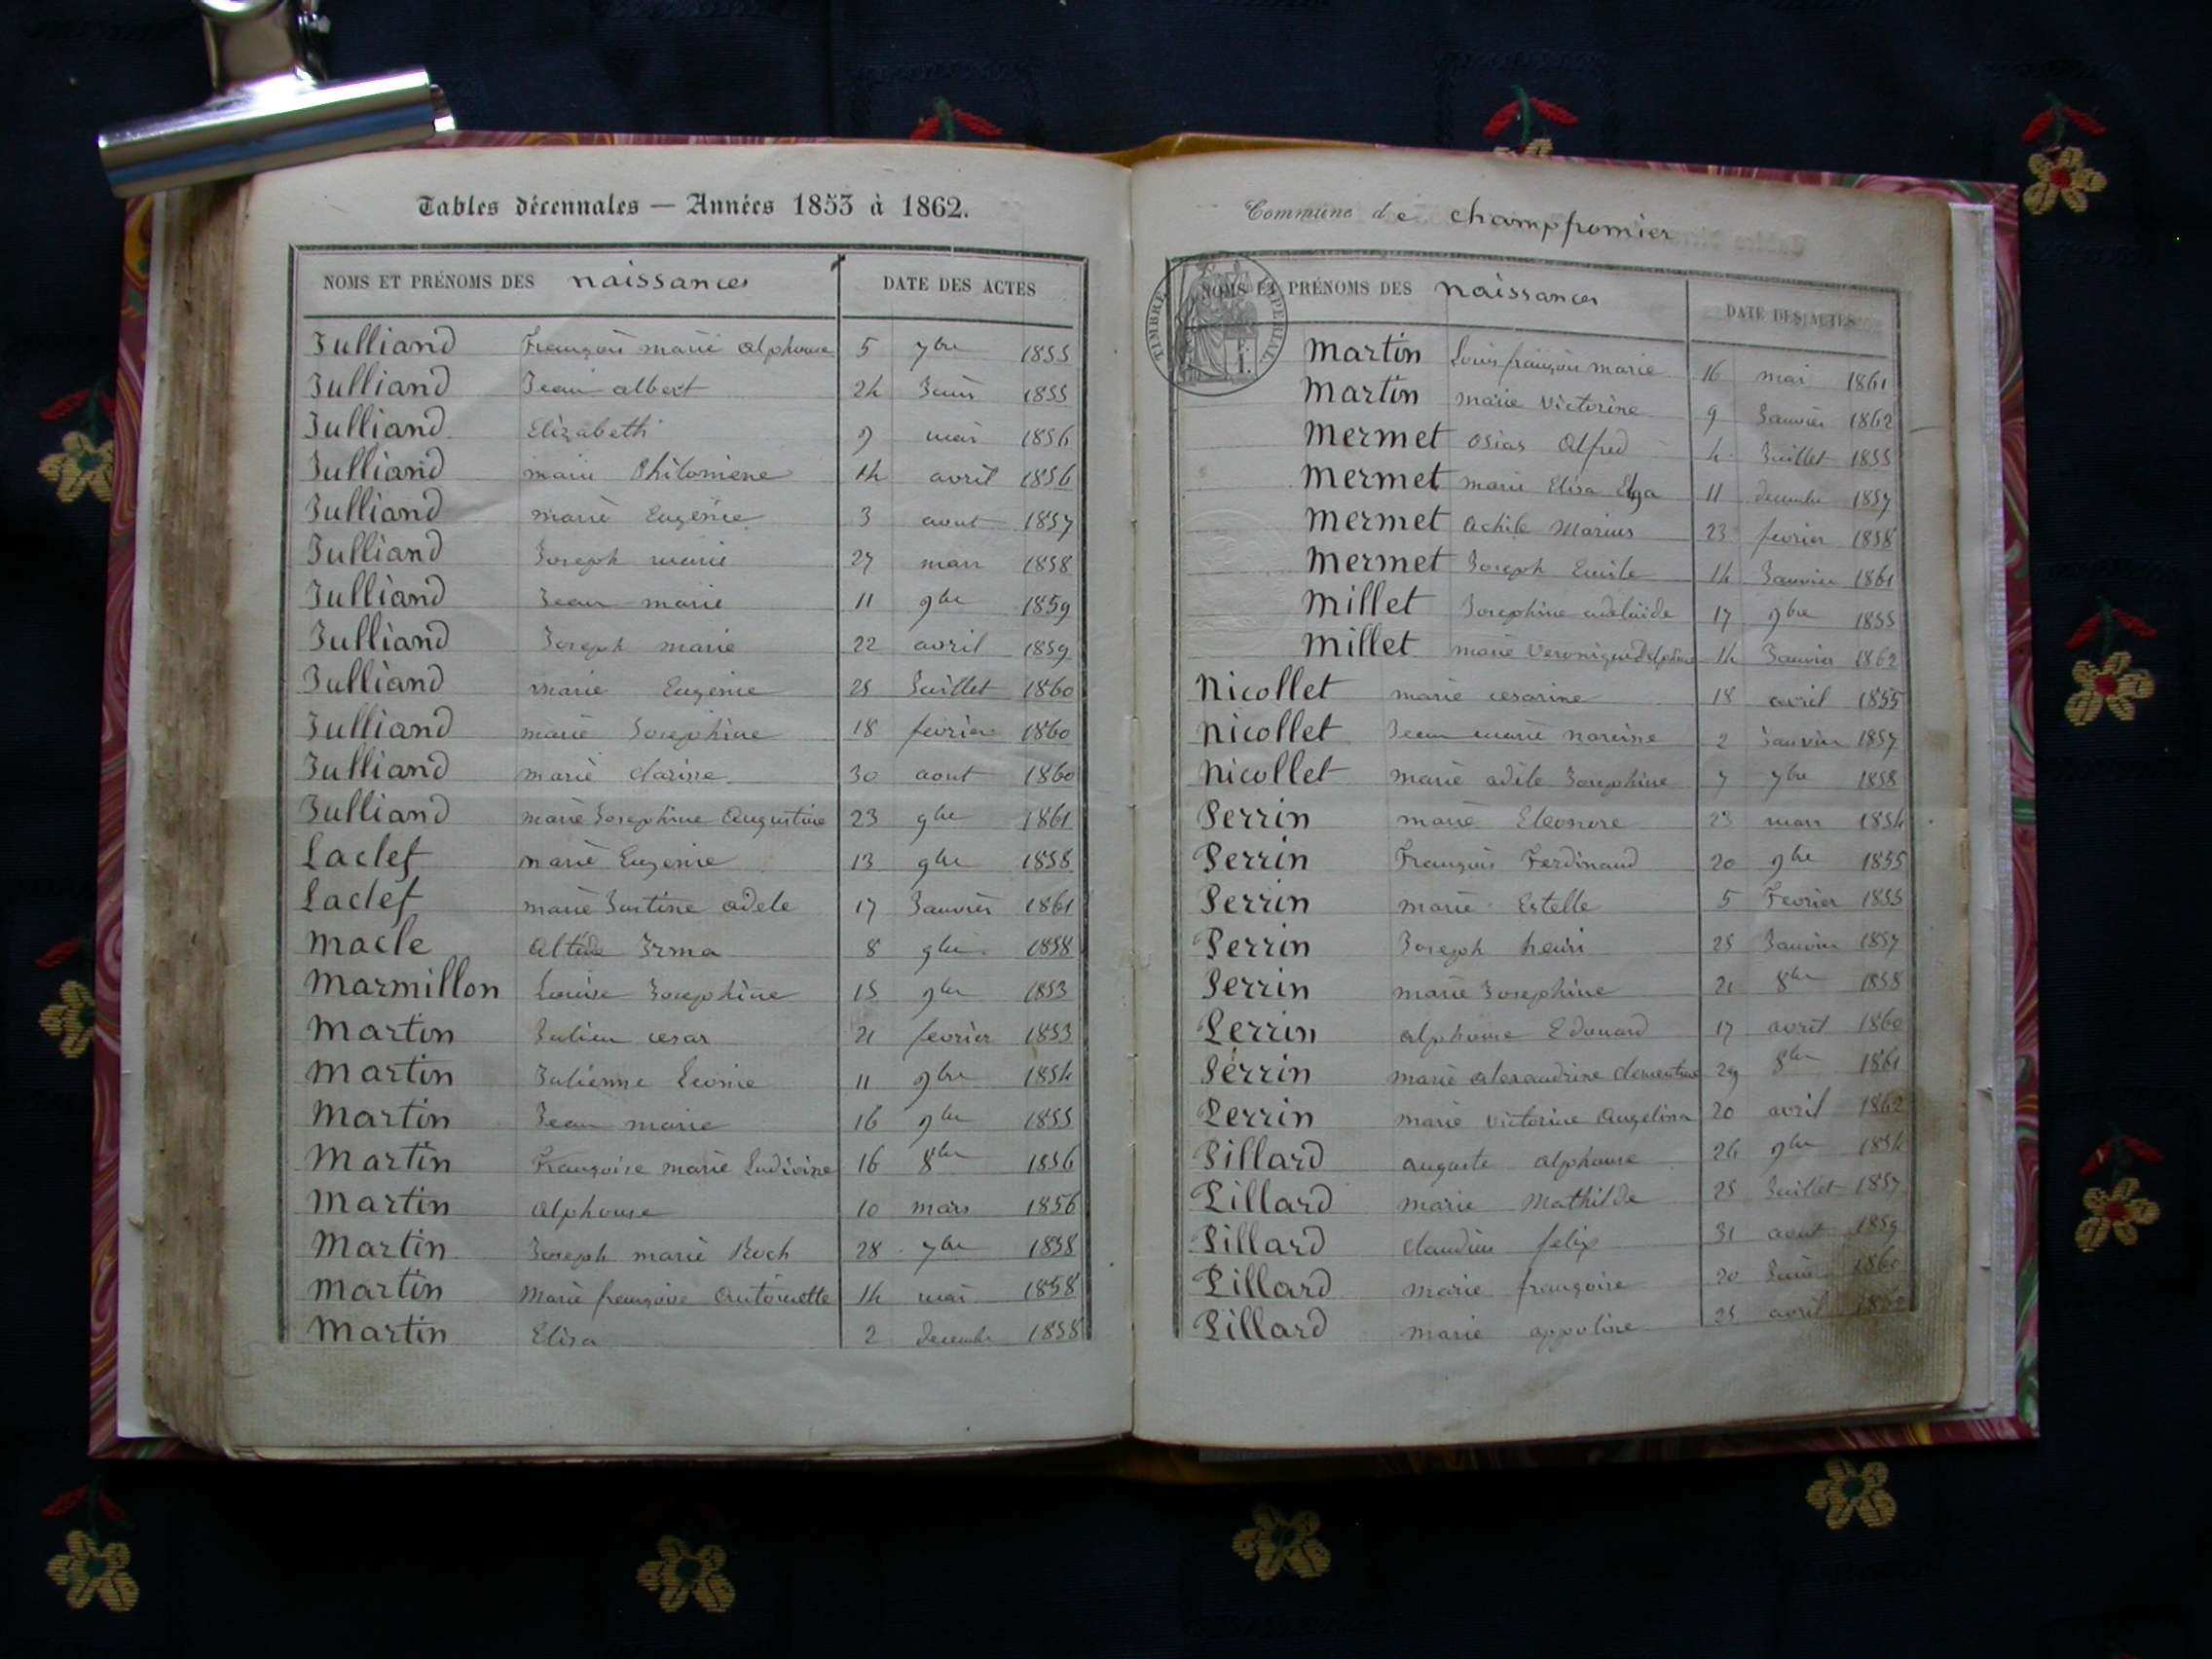 Tables décennales — Années 1853 à 1862.
NOMS ET PRÉNOMS DES naissances DATE DES ACTES
Julliand François marie alphonse 5 7bre 1855
Julliand Jean albert 24 Juin 1855
Julliand Elizabeth 9 mai 1856
Julliand marie Philomene 14 avril 1856
Julliand marie Eugénie 3 aout 1857
Julliand Joseph marie 27 mars 1858
Julliand Jean marie 11 9bre 1859
Julliand Joseph marie 22 avril 1859
Julliand marie Eugénie 25 Juillet 1860
Julliand marie Josephine 18 fevrier 1860
Julliand marie clarisse 30 aout 1860
Julliand marie Josephine Augustine 23 9bre 1861
Laclef marie Eugenie 13 9bre 1858
Laclef marie Justine adele 17 Janvier 1861
Macle Irma 8 9bre 1858
Marmillon Louise Josephine 15 9bre 1853
Martin Julien cesar 21 fevrier 1853
Martin Julienne Leonie 11 9bre 1854
Martin Jean marie 16 9bre 1855
Martin Françoise marie Ludivine 16 8bre 1856
Martin alphonse 10 mars 1856
Martin Joseph marie Roch 28 7bre 1858
Martin Marie françoise Antoinette 14 mai 1858
Martin Elisa 2 decembre 1858
Commune de champfromier
TIMBRE IMPERIAL
NOMS ET PRÉNOMS DES naissances DATE DES ACTES
Martin Louis françois marie 16 mai 1861
Martin marie victorine 9 Janvier 1862
Mermet osias Alfred 4 Juillet 1855
Mermet marie Elisa 11 decembre 1857
Mermet achile Marius 23 fevrier 1858
Mermet Joseph Emile 14 Janvier 1861
Millet Josephine adelaïde 17 9bre 1855
Millet marie Veronique Delphine 14 Janvier 1862
Nicollet marie cesarine 18 avril 1855
Nicollet Jean marie narcisse 2 Janvier 1857
Nicollet marie adèle Josephine 7 7bre 1858
Perrin marie Eleonore 23 mars 1854
Perrin François Ferdinand 20 9bre 1855
Perrin marie Estelle 5 Fevrier 1855
Perrin Joseph henri 25 Janvier 1857
Perrin marie Josephine 21 8bre 1858
Perrin alphonse Edouard 17 avril 1860
Perrin marie alexandrine clementine 29 8bre 1861
Perrin marie victorine Angelina 20 avril 1862
Pillard auguste alphonse 26 9bre 1854
Pillard marie Mathilde 25 Juillet 1857
Pillard claudius felix 31 aout 1859
Pillard marie françoise 20 Juin 1860
Pillard marie appoline 25 avril